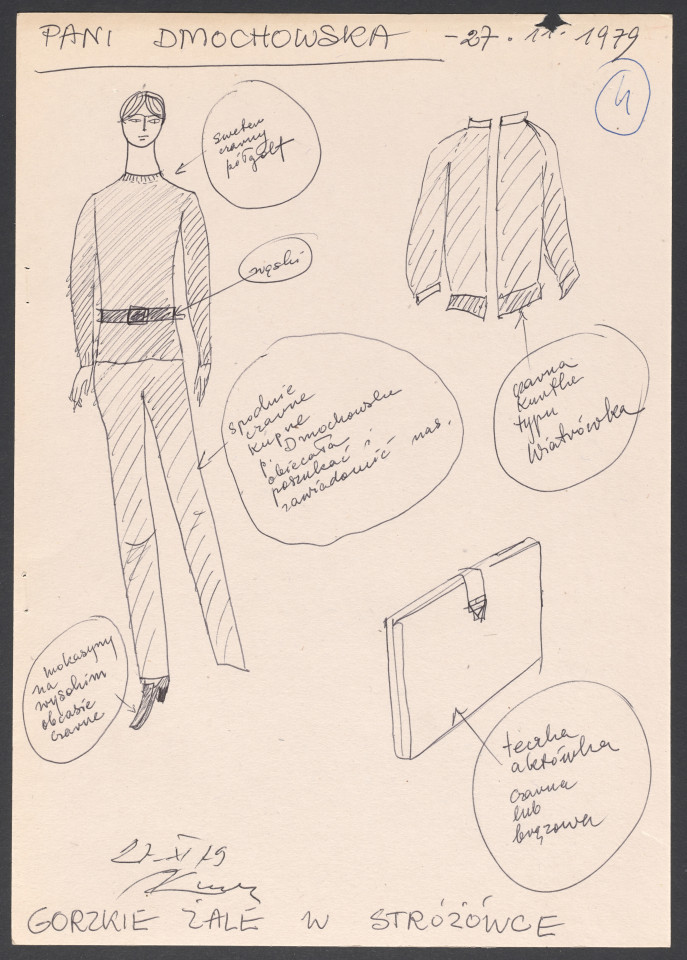 PANI DMOCHOWSKA - 27. 11. 1979
4
sweter
czarny
półgolf
wąski
spodnie
czarne
kupne
p. Dmochowska
obiecała
poszukać i
zawiadomić nas.
czarna
kurtka
typu
Wiatrówka
mokasyny
na
wysokim
obcasie
czarne
teczka
aktówka
czarna
lub
brązowa
27-XI 79
GORZKIE ŻALE W STRÓŻÓWCE